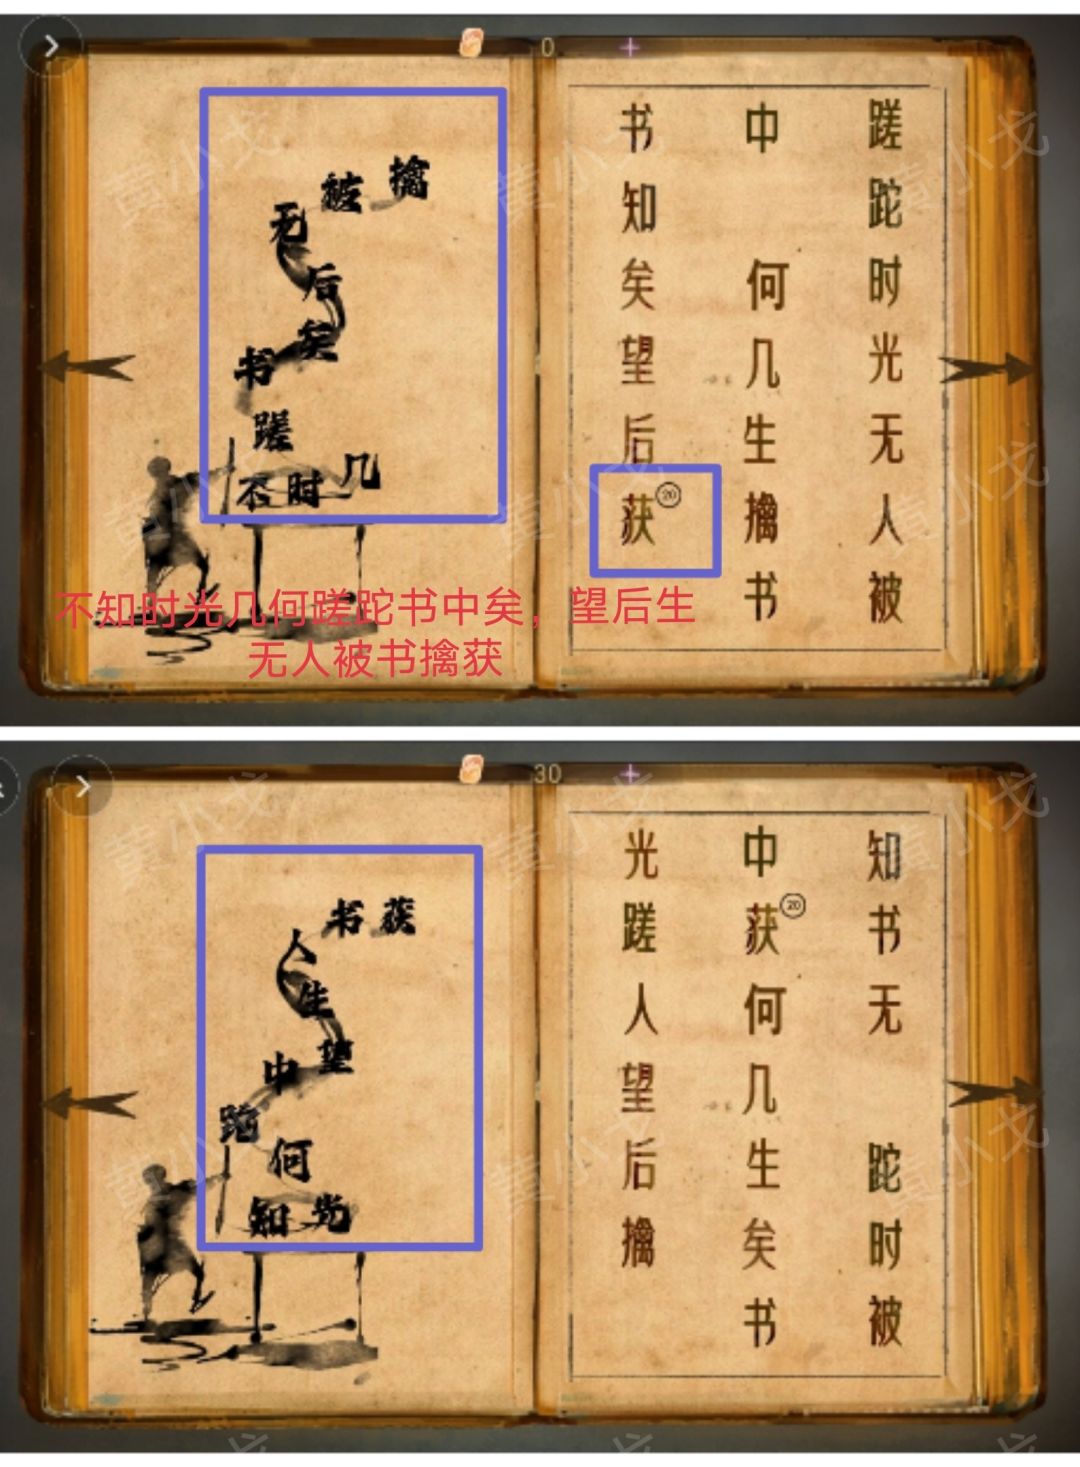 0
擒
被
无
后
矣
书
蹉
不时几
蹉跎时光无人被
中何几生擒书
书知矣望后获
20
不知时光几何蹉跎书中矣，望后生
无人被书擒获
30
书获
人
生
望
中
跎
何
知光
知书无跎时被
中获何几生矣书
20
光蹉人望后擒
黄小戈